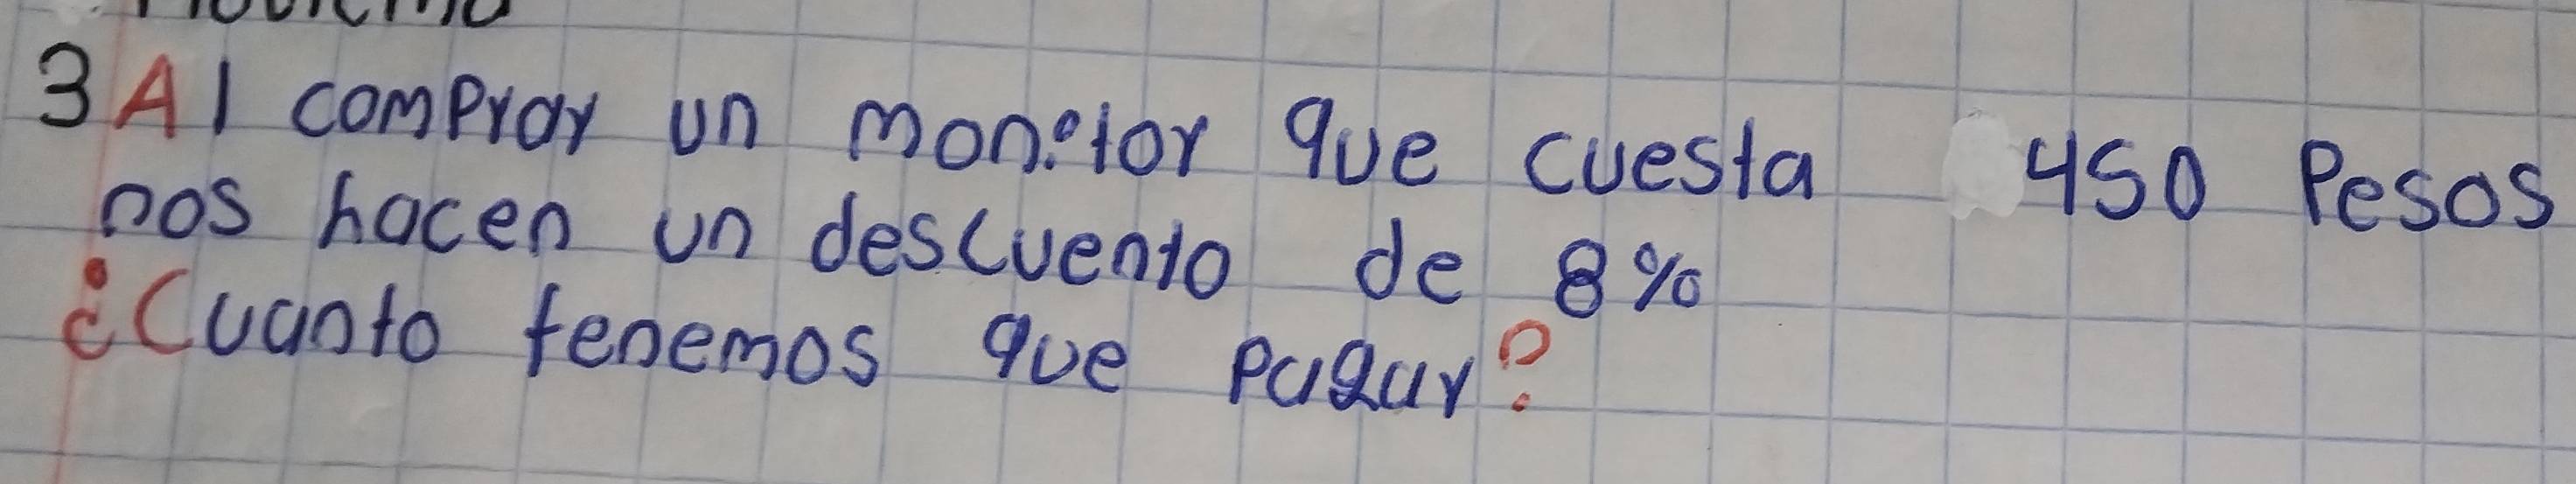 3 Al comprar un monitor que cuesta 450 Pesos
nos hacen un descuento de 8%
¿Cuanto tenemos que pagar?